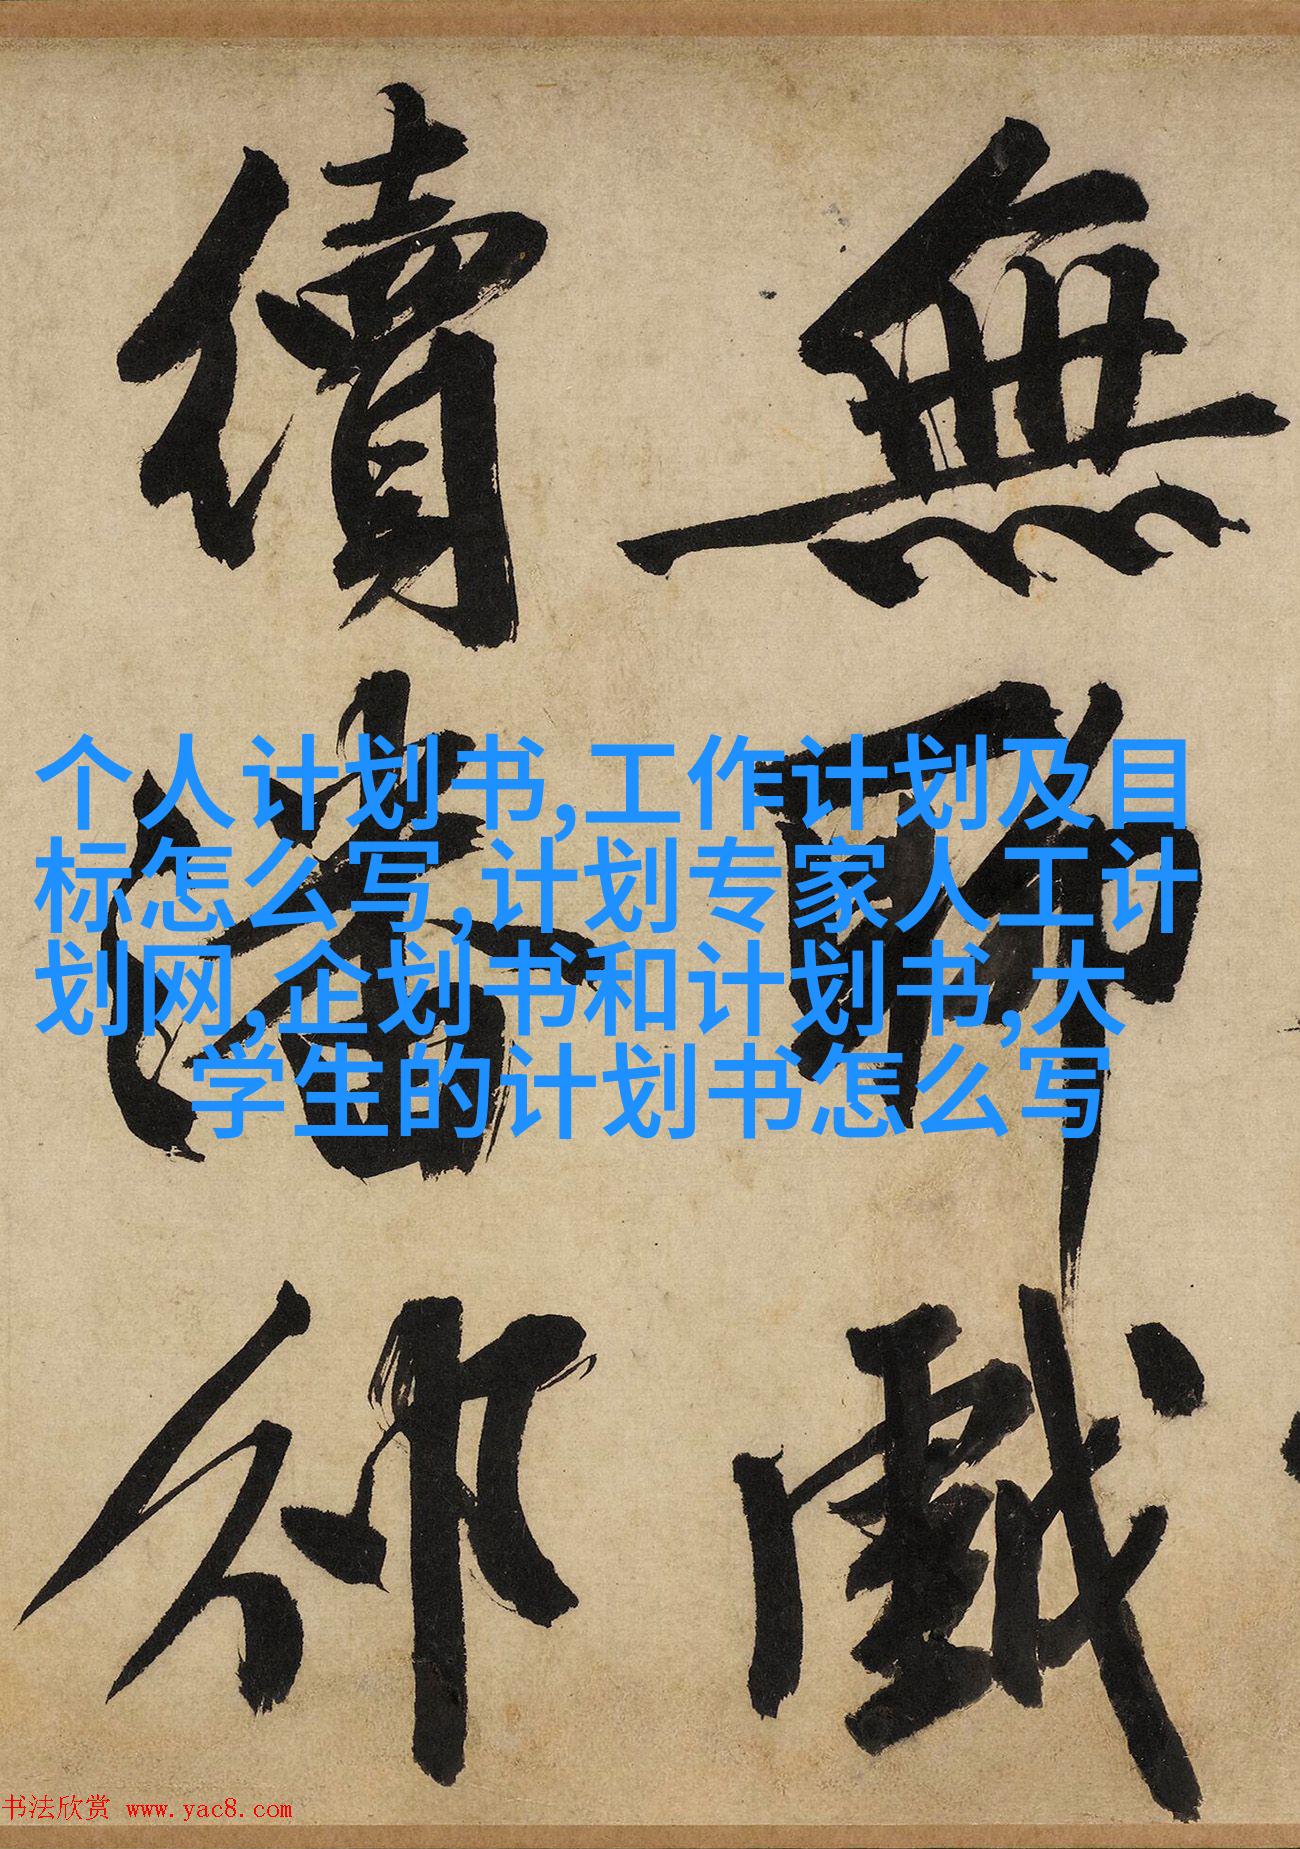 無聊戲
續潘邠
个人计划书,工作计划及目
标怎么写,计划专家人工计
划网,企划书和计划书,大
学生的计划书怎么写
书法欣赏 www.yac8.com